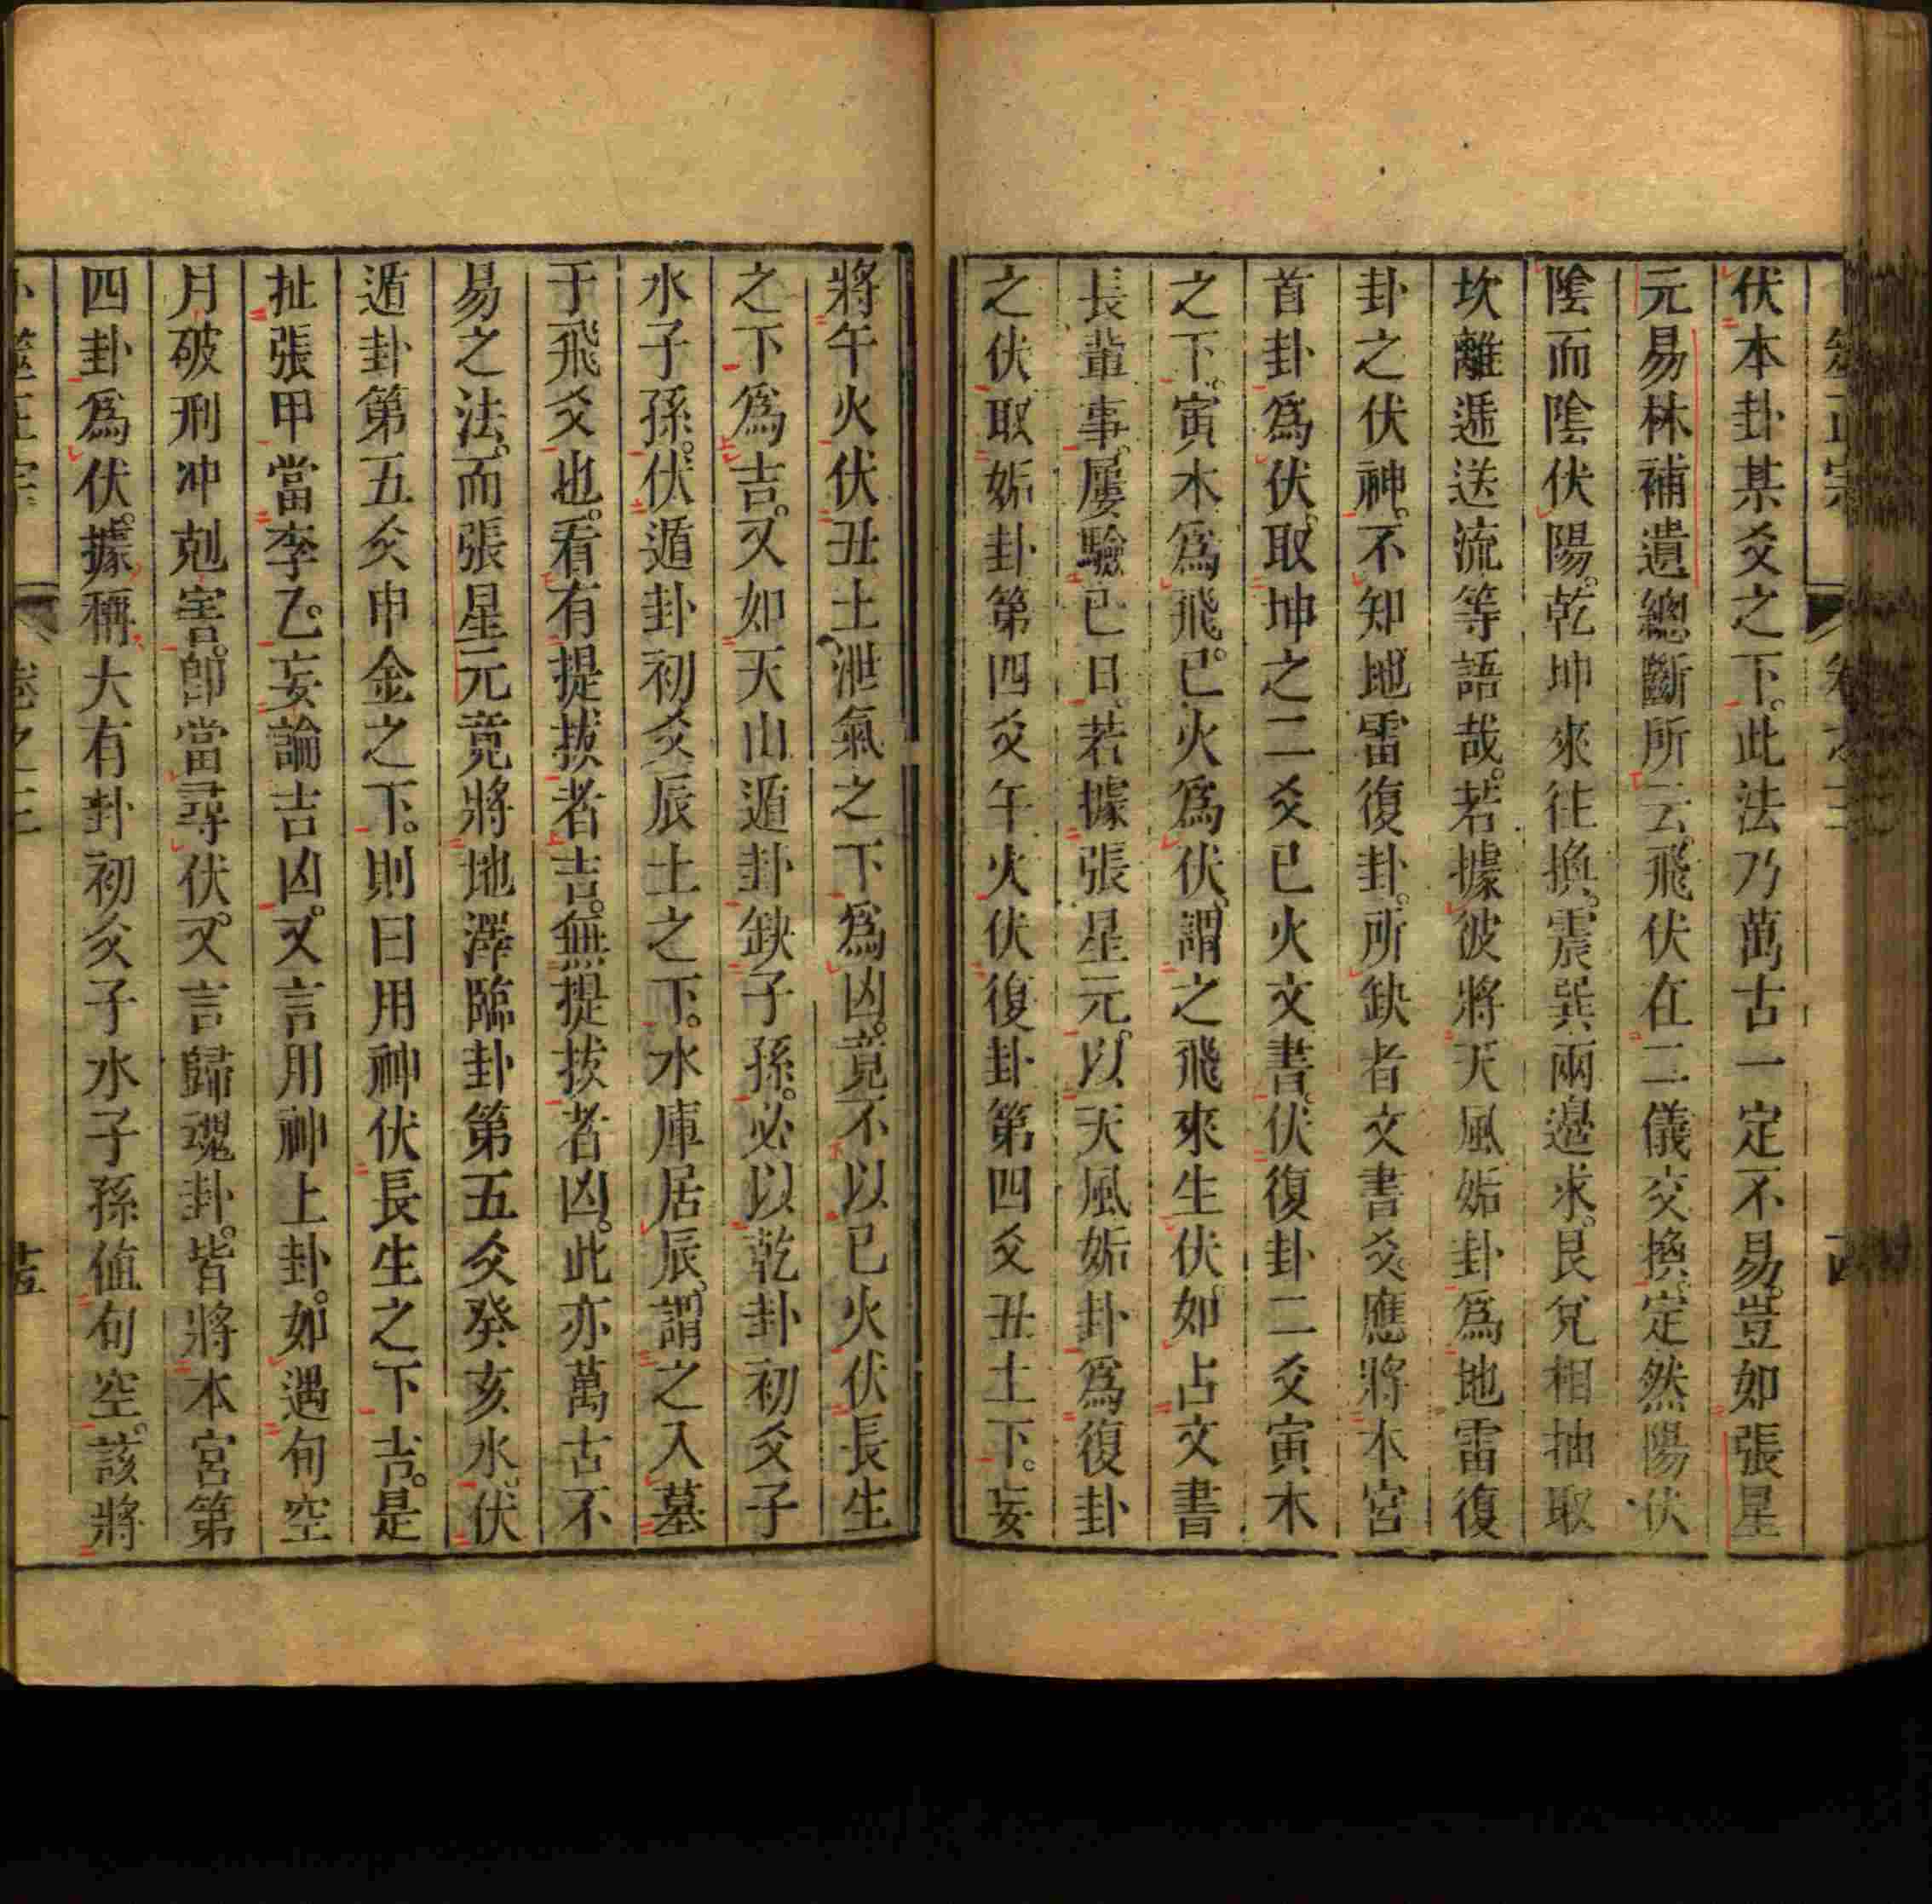 伏本卦某爻之下。此法乃萬古一定不易。豈如張星
元易林補遺總斷所云。飛伏在二儀交換。定然陽伏
陰而陰伏陽。乾坤來往換。震巽兩邊求。艮兌相抽取
坎離遞送流等語哉。若據彼將天風姤卦爲地雷復
卦之伏神。不知地雷復卦。所缺者文書爻。應將本宮
首卦爲伏。取坤之二爻巳火文書。伏復卦二爻寅木
之下。寅木爲飛。巳火爲伏。謂之飛來生伏。如占文書
長輩事。屢驗巳日。若據張星元。以天風姤卦爲復卦
之伏。取姤卦第四爻午火。伏復卦第四爻丑土下。妄
將午火伏丑土泄氣之下爲凶。竟不以巳火伏長生
之下爲吉。又如天山遁卦缺子孫。必以乾卦初爻子
水子孫。伏遁卦初爻辰土之下。水庫居辰。謂之入墓
于飛爻也。看有提拔者吉。無提拔者凶。此亦萬古不
易之法。而張星元竟將地澤臨卦第五爻癸亥水。伏
遁卦第五爻申金之下。則曰用神伏長生之下吉。是
扯張甲當李乙。妄論吉凶。又言用神上卦。如遇旬空
月破刑冲剋害。卽當尋伏。又言歸魂卦。皆將本宮第
四卦爲伏。據稱大有卦初爻子水子孫值旬空。該將